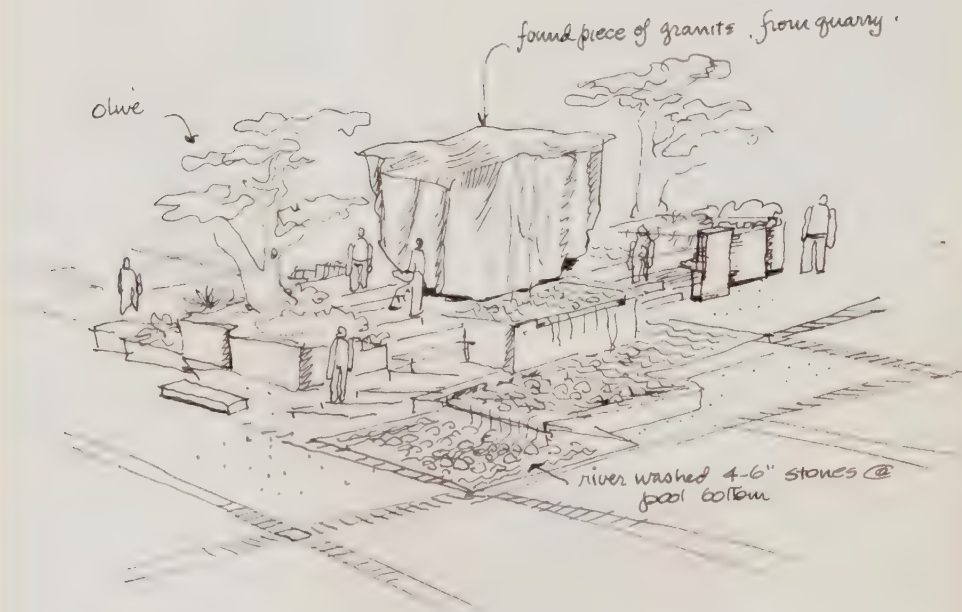 found piece of granite, from quarry.
olive
river washed 4-6" stones @
pool bottom